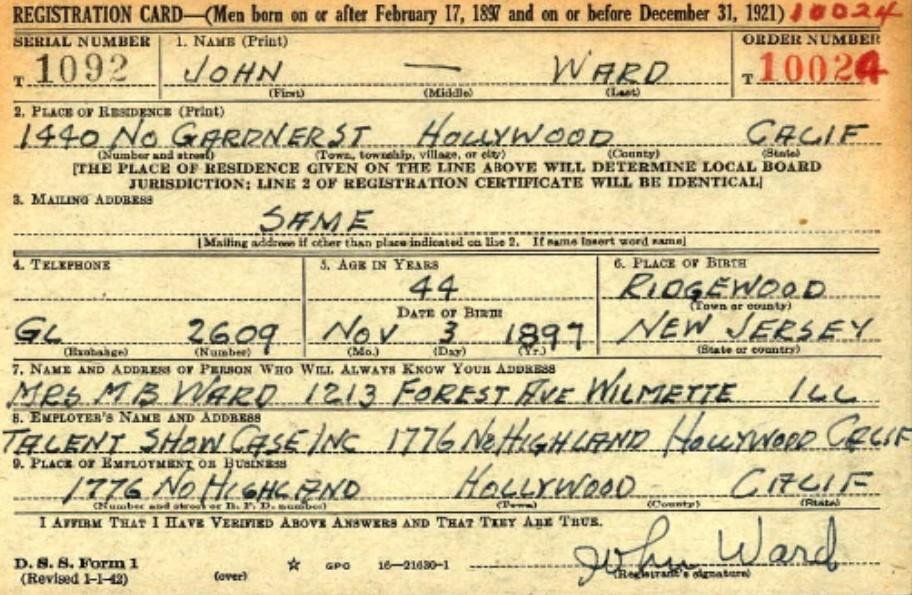 REGISTRATION CARD—(Men born on or after February 17, 1897 and on or before December 31, 1921) 10024
SERIAL NUMBER 1. NAME (Print) ORDER NUMBER
T 1092 JOHN — WARD T 10024
(First) (Middle) (Last)
2. PLACE OF RESIDENCE (Print)
1440 NO GARDNER ST HOLLYWOOD CALIF
(Number and street) (Town, township, village, or city) (County) (State)
[THE PLACE OF RESIDENCE GIVEN ON THE LINE ABOVE WILL DETERMINE LOCAL BOARD
JURISDICTION; LINE 2 OF REGISTRATION CERTIFICATE WILL BE IDENTICAL]
3. MAILING ADDRESS
SAME
[Mailing address if other than place indicated on line 2. If same insert word same]
4. TELEPHONE 5. AGE IN YEARS 6. PLACE OF BIRTH
44 RIDGEWOOD
DATE OF BIRTH (Town or county)
GL 2609 NOV 3 1897 NEW JERSEY
(Exchange) (Number) (Mo.) (Day) (Yr.) (State or country)
7. NAME AND ADDRESS OF PERSON WHO WILL ALWAYS KNOW YOUR ADDRESS
MRS M B WARD 1213 FOREST AVE WILMETTE ILL
8. EMPLOYER'S NAME AND ADDRESS
TALENT SHOW CASE INC 1776 NO HIGHLAND HOLLYWOOD CALIF
9. PLACE OF EMPLOYMENT OR BUSINESS
1776 NO HIGHLAND HOLLYWOOD CALIF
(Number and street or R. F. D. number) (Town) (County) (State)
I AFFIRM THAT I HAVE VERIFIED ABOVE ANSWERS AND THAT THEY ARE TRUE.
John Ward
D. S. S. Form 1
(Revised 1-1-42) (over) ☆ GPO 16—21630-1 (Registrant's signature)